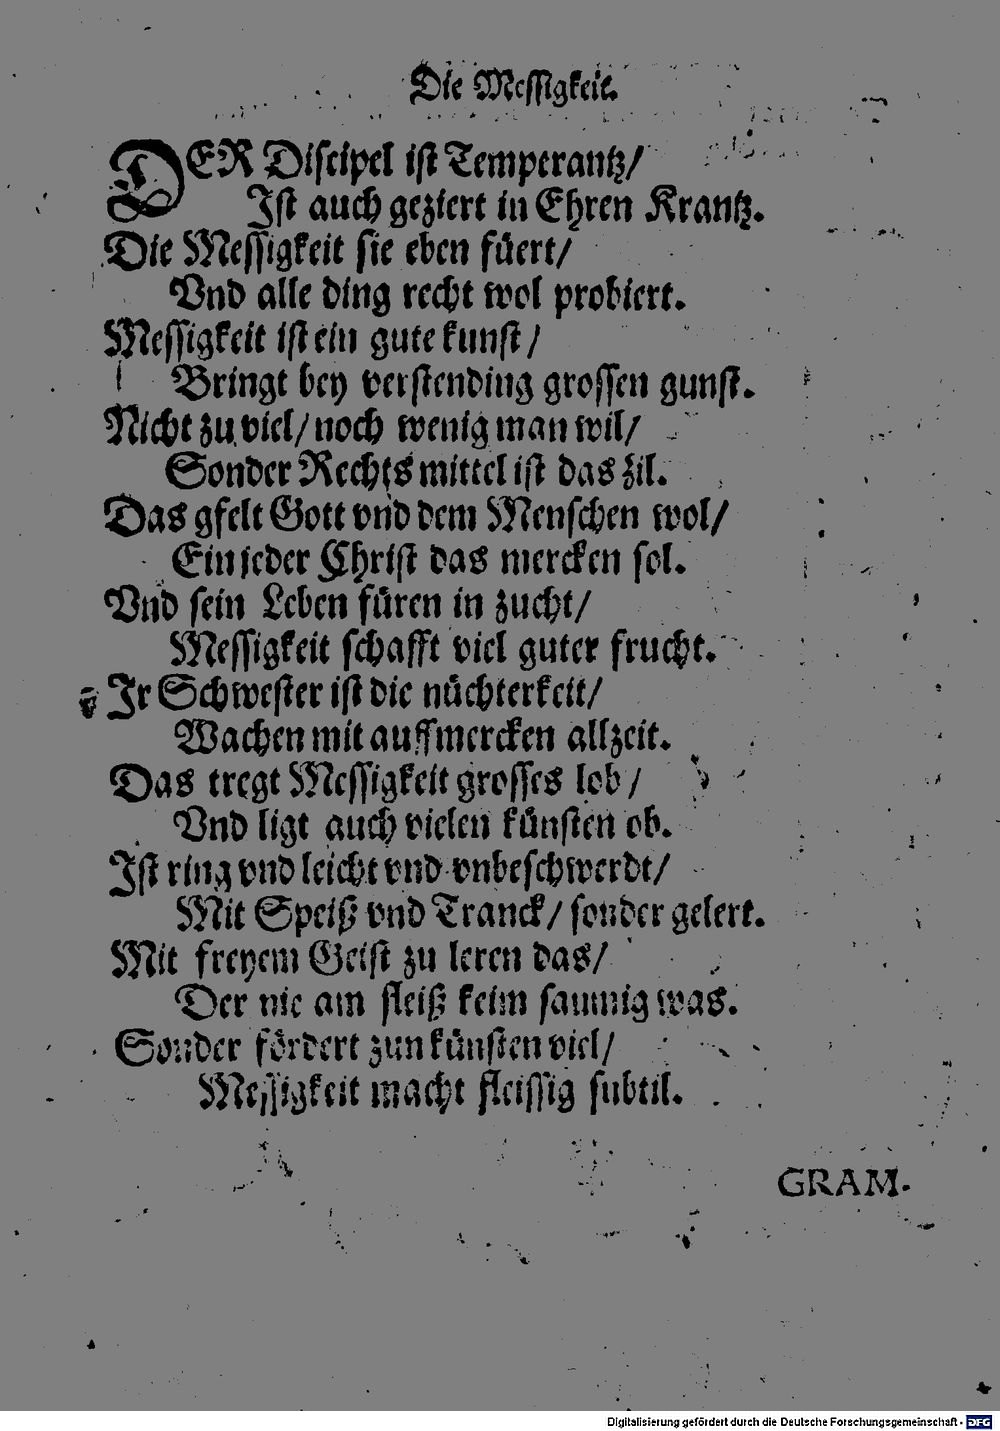 Die Messigkeit.
DER Discipel ist Temperantz/
Ist auch geziert in Ehren Krantz.
Die Messigkeit sie eben füert/
Vnd alle ding recht wol probiert.
Messigkeit ist ein gute kunst/
Bringt bey verstending grossen gunst.
Nicht zu viel/ noch wenig man wil/
Sonder Rechts mittel ist das zil.
Das gfelt Gott vnd dem Menschen wol/
Ein jeder Christ das mercken sol.
Vnd sein Leben füren in zucht/
Messigkeit schafft viel guter frucht.
Ir Schwester ist die nüchterkeit/
Wachen mit auffmercken allzeit.
Das tregt Messigkeit grosses lob/
Vnd ligt auch vielen künsten ob.
Ist ring vnd leicht vnd vnbeschwerdt/
Mit Speiß vnd Tranck/ sonder gelert.
Mit freyem Geist zu leren das/
Der nie am fleiß keim saumig was.
Sonder fördert zun künsten viel/
Messigkeit macht fleissig subtil.
GRAM.
Digitalisierung gefördert durch die Deutsche Forschungsgemeinschaft - DFG